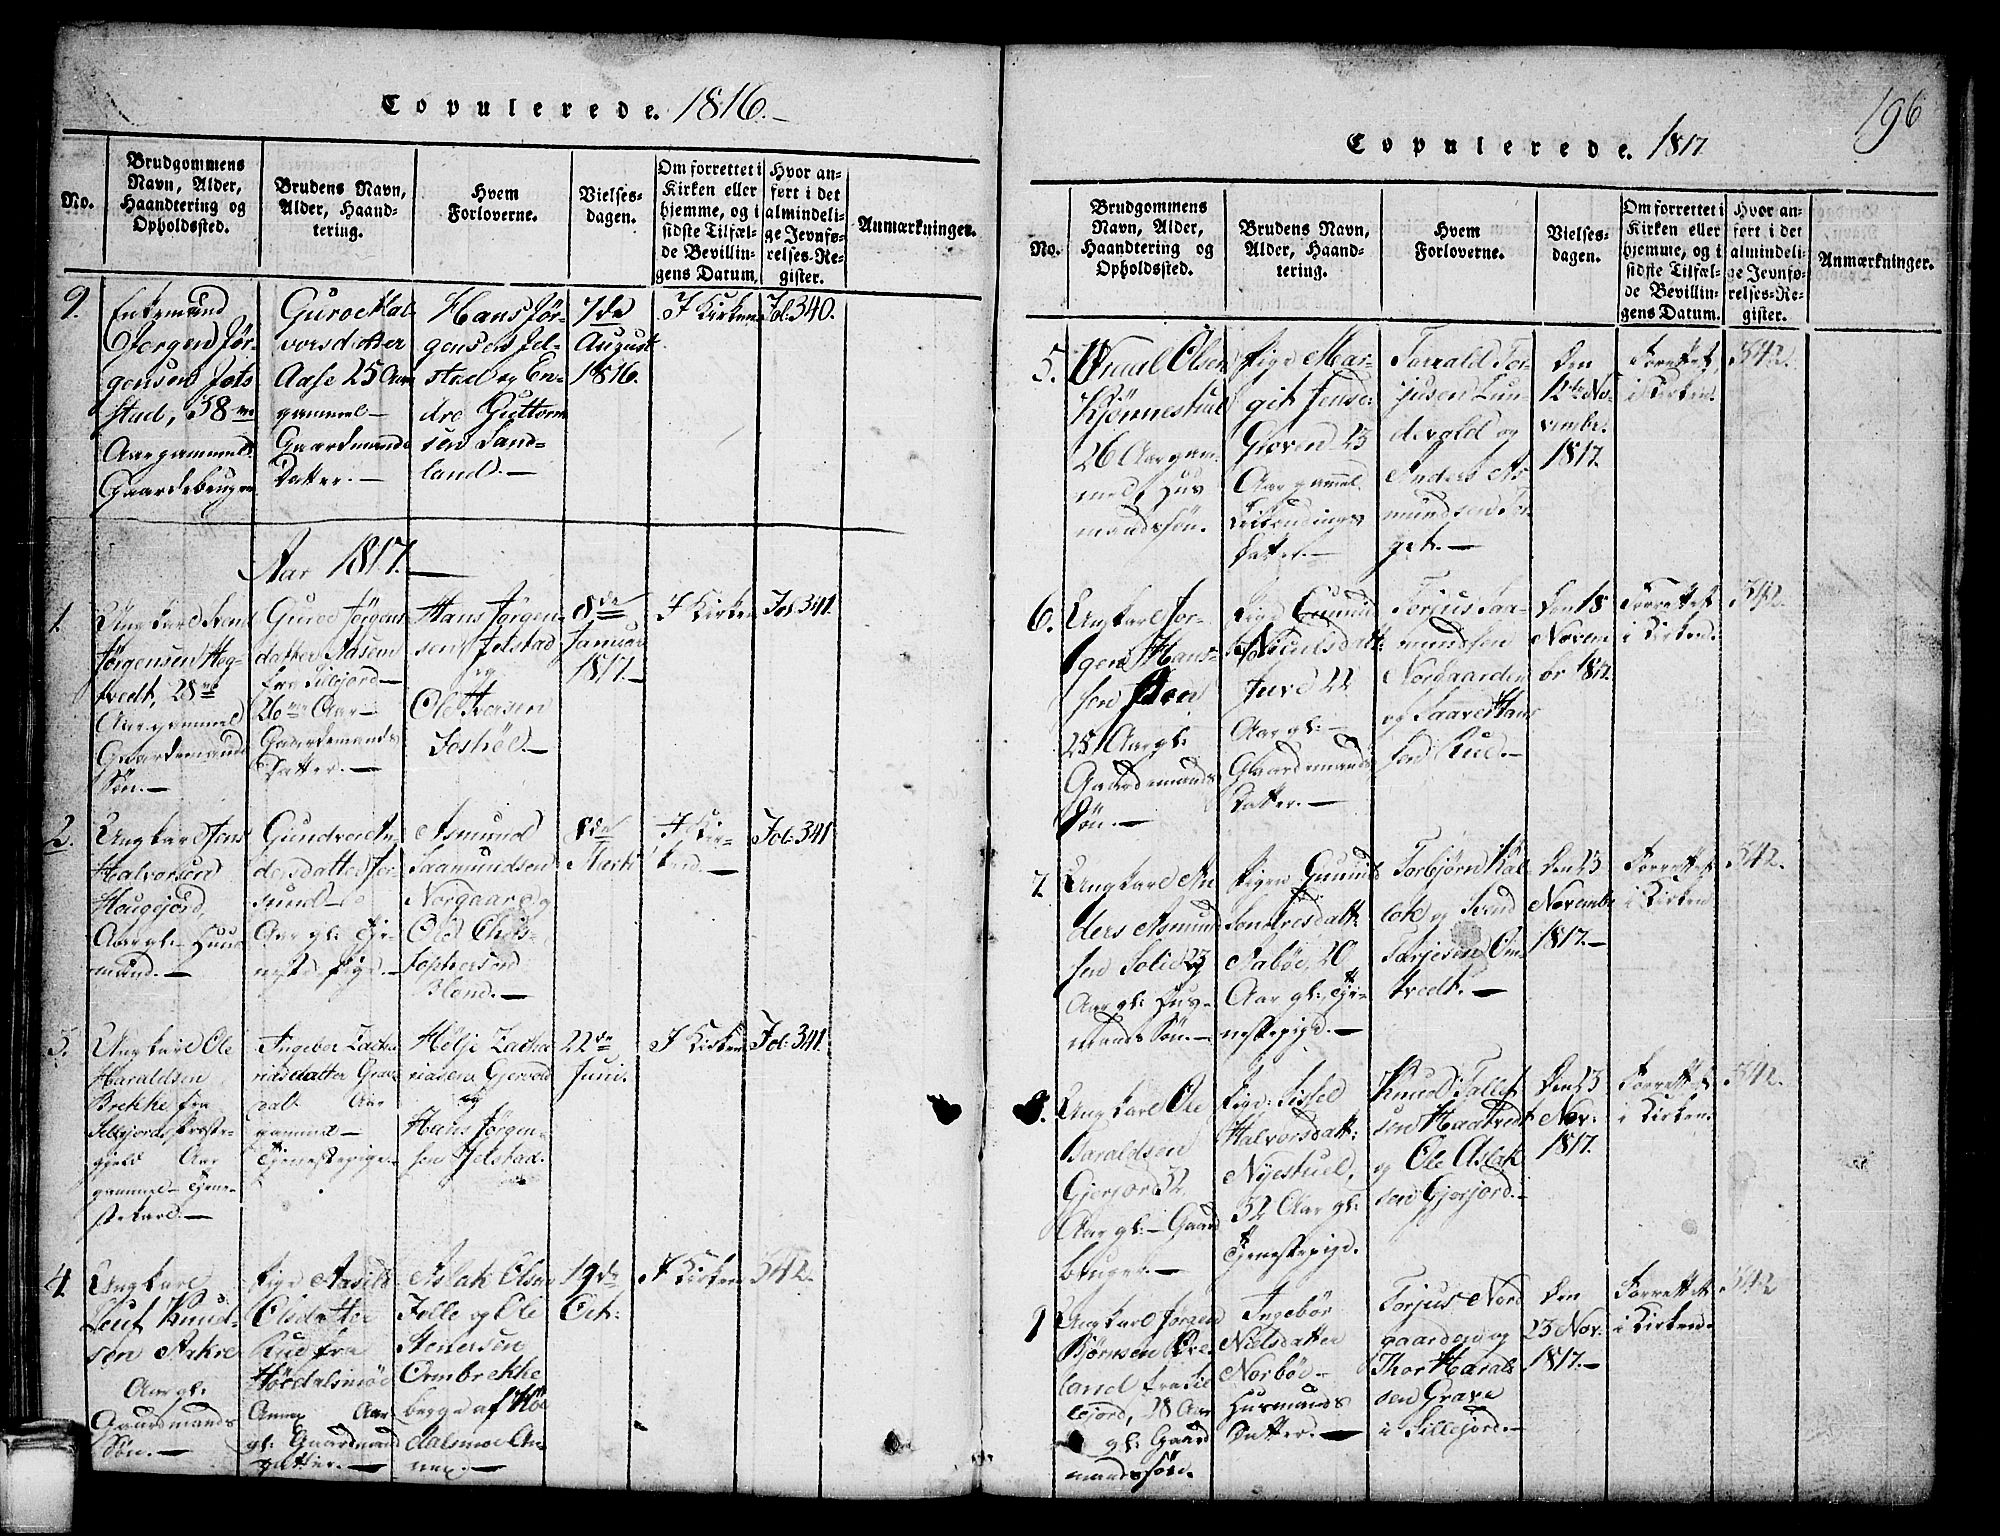 Copulerede. 1816.
No.
Brudgommens Navn, Alder, Haandtering og Opholdssted.
Brudens Navn, Alder, Haandtering.
Hvem Forloverne.
Vielsesdagen.
Om forrettet i Kirken eller hjemme, og i sidste Tilfælde Bevillingens Datum.
Hvor anført i det almindelige Jevnførelses-Register.
Anmærkninger.
9.
Enkemand
Jørgen Jør-
gensen
stad, 58
Aar gammel
Gaardebruger
Guroe Hal-
vorsdatter
Aase 25 Aar
gammel
Gaardemands
Datter. —
Hans Jør-
gensen Jel-
stad og En-
dre Guttorm
sen Land-
land. —
7de
August
1816.
I Kirken
Fol: 340.
Aar 1817. —
1.
Ungkarl
Jørgensen Heg-
tvedt, 28
Aar gammel
Gaardemands
Søn. —
Guroe Jørgens
datter Aasen
fra Sillejord —
26 Aar
Gaardemands
Datter. —
Hans Jørgen-
sen Jelstad
og
Ole Iversen
—
8de
Januar
1817. —
I Kirken
Fol: 341.
2.
Ungkarl Jens
Halvorsen
Haugejord,
Aar gl: Huus
mand. —
Gundroe An-
dersdatter
sund
Aar gl: Tje-
nestepige. —
Asmund
Saamundsen
Norgaare og
Ole Chris-
Bland. —
8de
Marti
I Kir-
ken. —
Fol: 341
3.
Ungkarl Ole
Haraldsen
Brekke fra
Sillejords Præste-
gjeld Aar
gammel Tjene-
stekarl. —
Ingebor Zacha
riasdatter Grave
dal Aar
gammel —
Tjenestepige. —
Hølje Zacha
riasen Gjervold
og
Hans Jørgen-
sen Jelstad.
22de
Juni.
I Kirken
Fol: 341.
4.
Ungkarl
Leuf Knud-
sen
Aar gl:
Gaardmands
Søn. —
Pige Aasild
Olsdatter
Rue fra
Hördalsmoe
Annex Aar
gl: Gaardmand
datter. —
Aslak Olsen
og Ole
Stenersen
Ormbrekke
begge af Hör
dalsmoe An-
nex. —
19de
Oct:
I Kirken
342.
196
Copulerede. 1817.
No.
Brudgommens Navn, Alder, Haandtering og Opholdssted.
Brudens Navn, Alder, Haandtering.
Hvem Forloverne.
Vielsesdagen.
Om forrettet i Kirken eller hjemme, og i sidste Tilfælde Bevillingens Datum.
Hvor anført i det almindelige Jevnførelses-Register.
Anmærkninger.
5.
Knud Olsen
26 Aar gam-
mel, Hus
mandssøn.
Pige Mar-
git Jens:
Groven 23
Aar gammel
Datter. —
Tarrald Tor-
jusen Lun-
devold og
Anders As-
mundsen
Den
12te No-
vember
1817.
Forrettet
i Kirken.
342.
6.
Ungkarl Jør-
gen Hans-
sen
25 Aar gl:
Gaardemands
Søn. —
Pige Gunild
Nielsdatt:
Juve 22
Aar gl: —
Gaardemands
Datter. —
Torjus Saa-
mundsen
Norgaarden
og
sen Rue. —
Den 18
Novem
br 1817.
Forrettet
i Kirken.
342.
7
Ungkarl An
ders Asmund
sen Solie 23
Aar gl: Hus-
mands Søn. —
Pigen Gunild
Sondresdatt:
20
Aar gl: Tje-
nestepige. —
Torbjørn
og Svend
Tarjesen
tvedt. —
Den 23
November
1817. —
Forrettet
i Kirken
342.
8.
Ungkarl Ole
Haraldsen
Gjerjord 32
Aar gl: — Gaard
bruger. —
Pige: Sissel
Halvorsdatt:
Nyestuel,
32 Aar gl:
Tjenestepige.
Knud Tollef
sen Haatvedt
og Ole Aslak
sen Gjerjord. —
Den 23
Nov:
1817.
Forrettet
i Kirken.
342.
9
Ungkarl Jørgen
Bjørnsen
land fra Sil
lejord, 28 Aar
gl: Gaard
mandssøn.
Ingebør
Nielsdatter
Norbøe —
Husmands
Datter. —
Torjus Nord
gaarden og
Thor Harald
sen Grave
i Sillejord. —
Den
23 Nov:
1817. —
Forrettet
i Kirken.
342